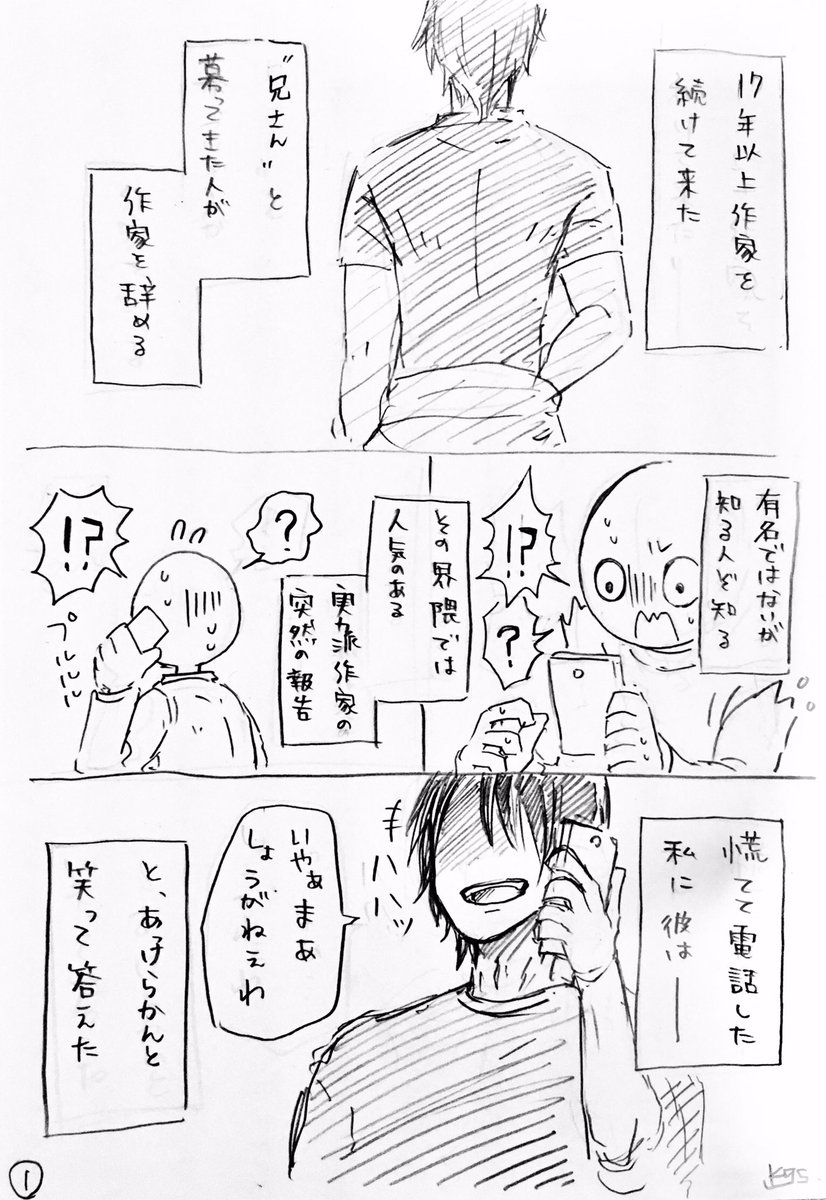 17年以上作家を
続けて来た
"兄さん"と
慕ってきた人が
作家を辞める
有名ではないが
知る人ぞ知る
!?
?
その界隈では
人気のある
実力派作家の
突然の報告
?
!?
プルルルル
慌てて電話した
私に彼は──
ハハハッ
いやぁまあ
しょうがねぇわ
と、あけらかんと
笑って答えた
1